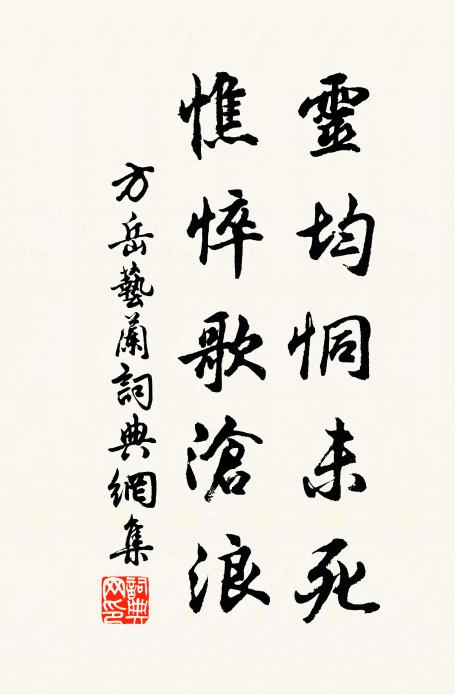 靈均恫未死
憔悴歌滄浪
方岳藝蘭詞典網集
詞典
网印